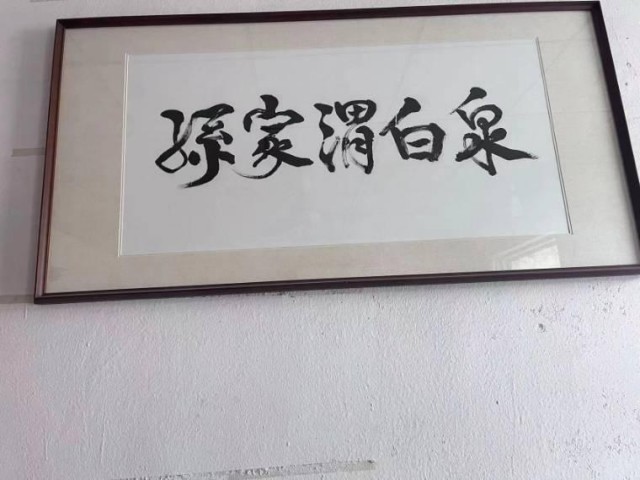 孫家渭白泉